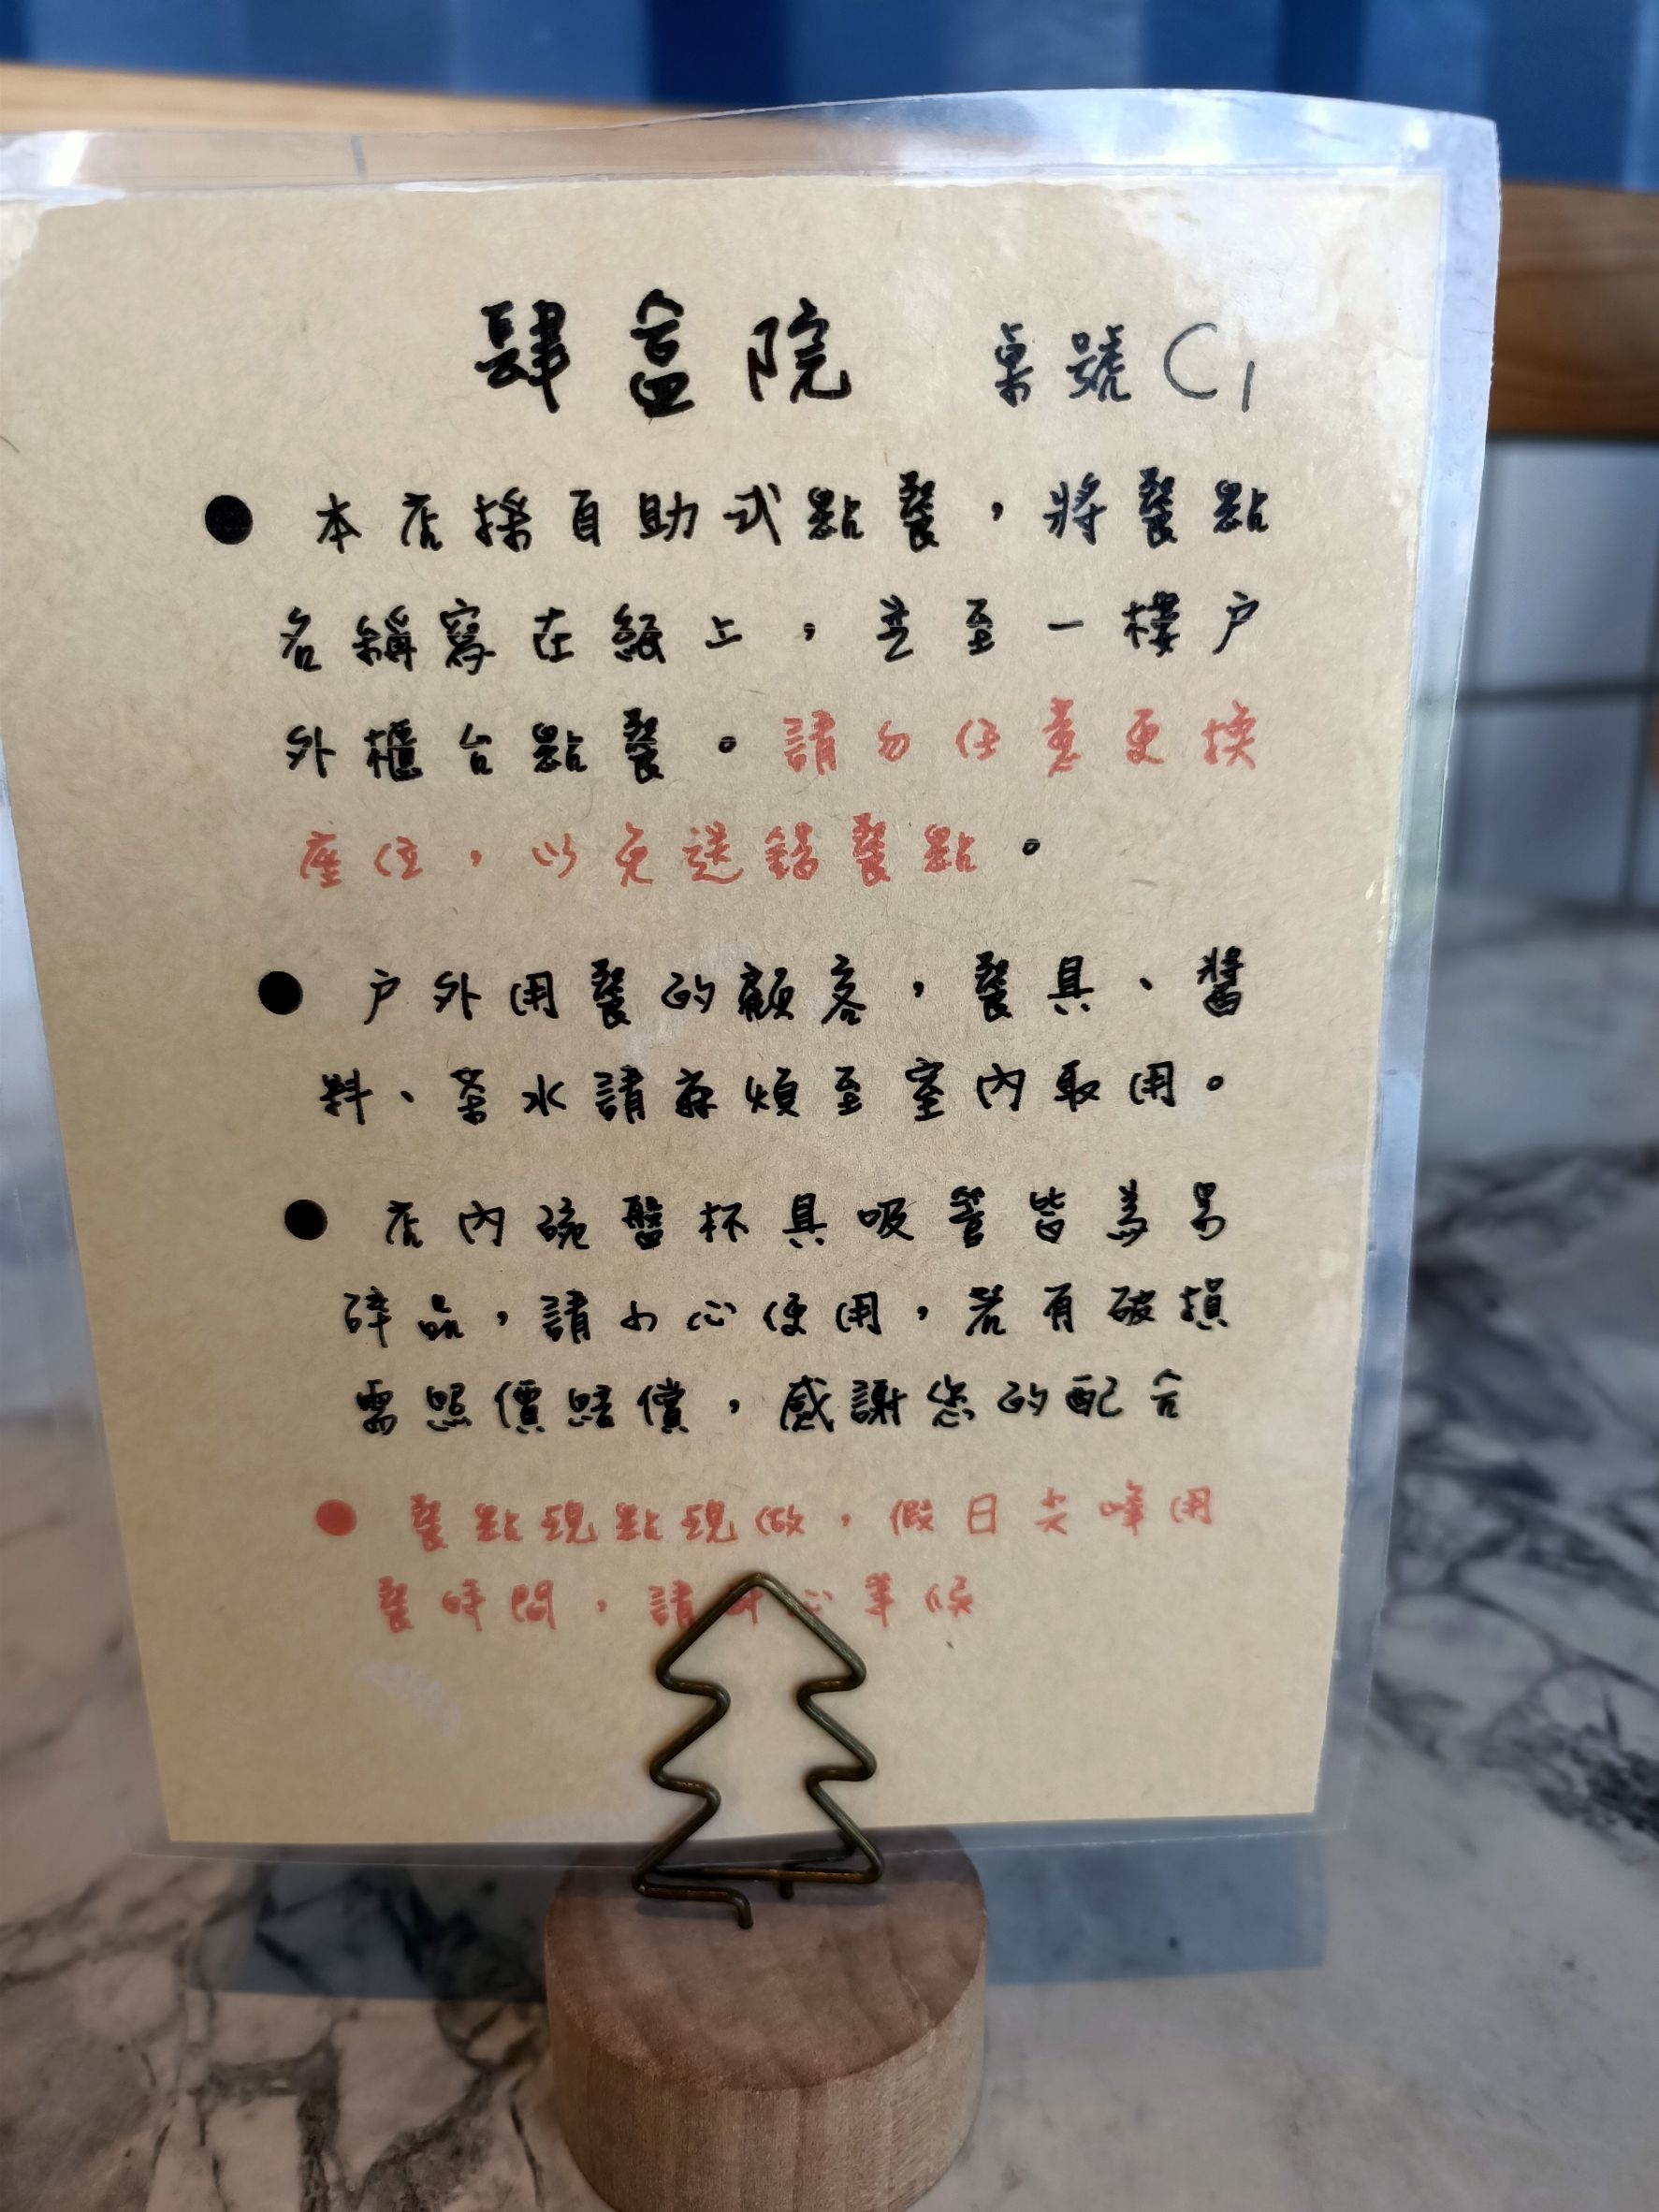 肆盒院 桌號 C1
● 本店採自助式點餐，將餐點
名稱寫在紙上，並至一樓户
外櫃台點餐。請勿任意更換
座位，以免送錯餐點。
● 户外用餐的顧客，餐具、醬
料、茶水請麻煩至室內取用。
● 店內碗盤杯具吸管皆為易
碎品，請小心使用，若有破損
需照價賠償，感謝您的配合
● 餐點現點現做，假日尖峰用
餐時間，請耐心等候